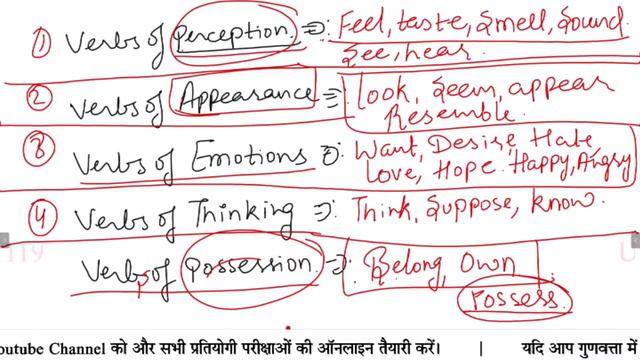 ① Verbs of Perception ⇒: Feel, taste, Smell, Sound
See, hear.
② Verbs of Appearance ⇒: Look, Seem, appear
Resemble.
③ Verbs of Emotions ⇒: Want, Desire, Hate,
Love, Hope. Happy, Angry
④ Verbs of Thinking ⇒: Think, Suppose, know.
119 U
Verbs of Possession ⇒: Belong, Own
Possess.
outube Channel को और सभी प्रतियोगी परीक्षाओं की ऑनलाइन तैयारी करें। | यदि आप गुणवत्ता में